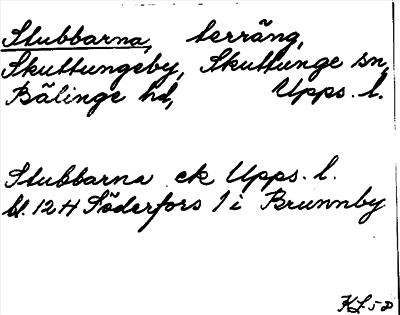 Stubbarna, terräng,
Skuttungeby, Skuttunge sn,
Bälinge hd, Upps. l.
Stubbarna ek Upps. l.
bl. 12 H Söderfors 1 i Brunnby
KL 58